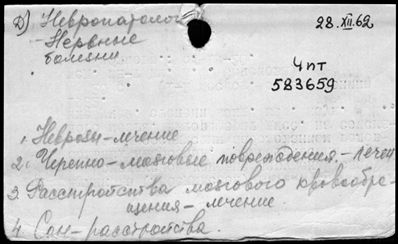 Д) Невропатолог
- Нервные
болезни.
28.XII.62
Чпт
583659
1. Неврозы - лечение
2. Черепно-мозговые повреждения - лечен
3. Расстройства мозгового кровообра-
щения - лечение
4. Сон - расстройства.